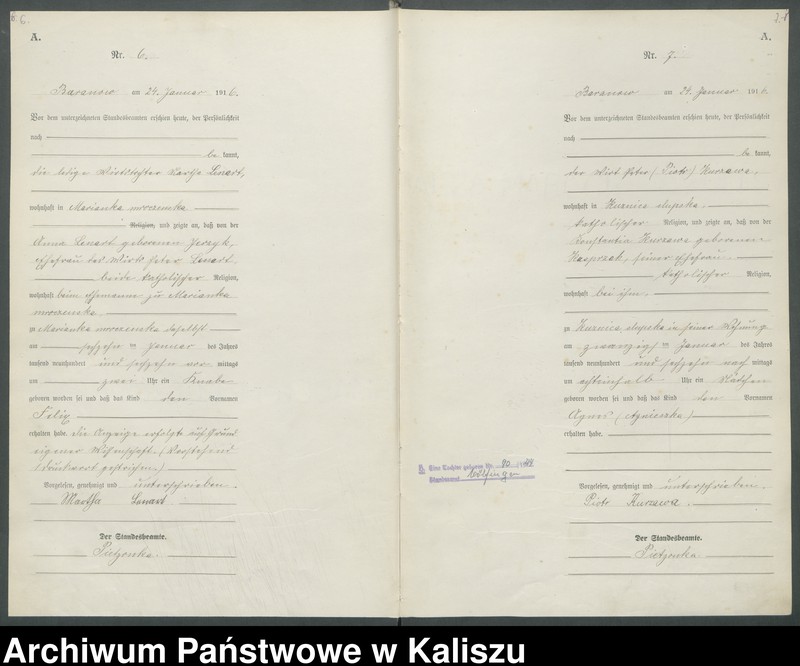 6.
A.
Nr. 6.
Baranow am 24. Januar 1916.
Vor dem unterzeichneten Standesbeamten erschien heute, der Persönlichkeit
nach
be kannt,
die ledige Wirtstochter Martha Lenart,
wohnhaft in Marianka mroczenska
Religion, und zeigte an, daß von der
Anna Lenart geborenen Jerzyk,
Ehefrau des Wirts Peter Lenart
beide katholischer Religion,
wohnhaft beim Ehemanne zu Marianka
mroczenska
zu Marianka mroczenska daselbst
am sechzehn ten Januar des Jahres
tausend neunhundert und sechzehn vor mittags
um zwei Uhr ein Knabe
geboren worden sei und daß das Kind den Vornamen
Felix
erhalten habe. Die Anzeige erfolgte auf Grund
eigener Wissenschaft. (Vorstehend
1 Druckwort gestrichen)
Vorgelesen, genehmigt und unterschrieben.
Martha Lenart
Der Standesbeamte.
Pietzonka.
A.
Nr. 7.
Baranow am 24. Januar 1916.
Vor dem unterzeichneten Standesbeamten erschien heute, der Persönlichkeit
nach
be kannt,
der Wirt Peter (Piotr) Kurzawa,
wohnhaft in Kuznica slupska,
katholischer Religion, und zeigte an, daß von der
Konstantia Kurzawa geborenen
Kasprzak, seiner Ehefrau,
katholischer Religion,
wohnhaft bei ihm,
zu Kuznica slupska in seiner Wohnung
am zwanzig ten Januar des Jahres
tausend neunhundert und sechzehn nach mittags
um achteinhalb Uhr ein Mädchen
geboren worden sei und daß das Kind den Vornamen
Agnes (Agnieszka)
erhalten habe.
Vorgelesen, genehmigt und unterschrieben.
Piotr Kurzawa.
Der Standesbeamte.
Pietzonka.
Eine Tochter geboren Nr.
Standesamt
Archiwum Państwowe w Kaliszu